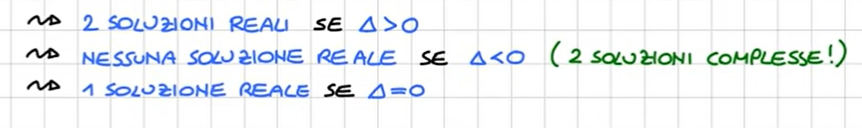 ⇝ 2 SOLUZIONI REALI SE Δ>0
⇝ NESSUNA SOLUZIONE REALE SE Δ<0 (2 SOLUZIONI COMPLESSE!)
⇝ 1 SOLUZIONE REALE SE Δ=0